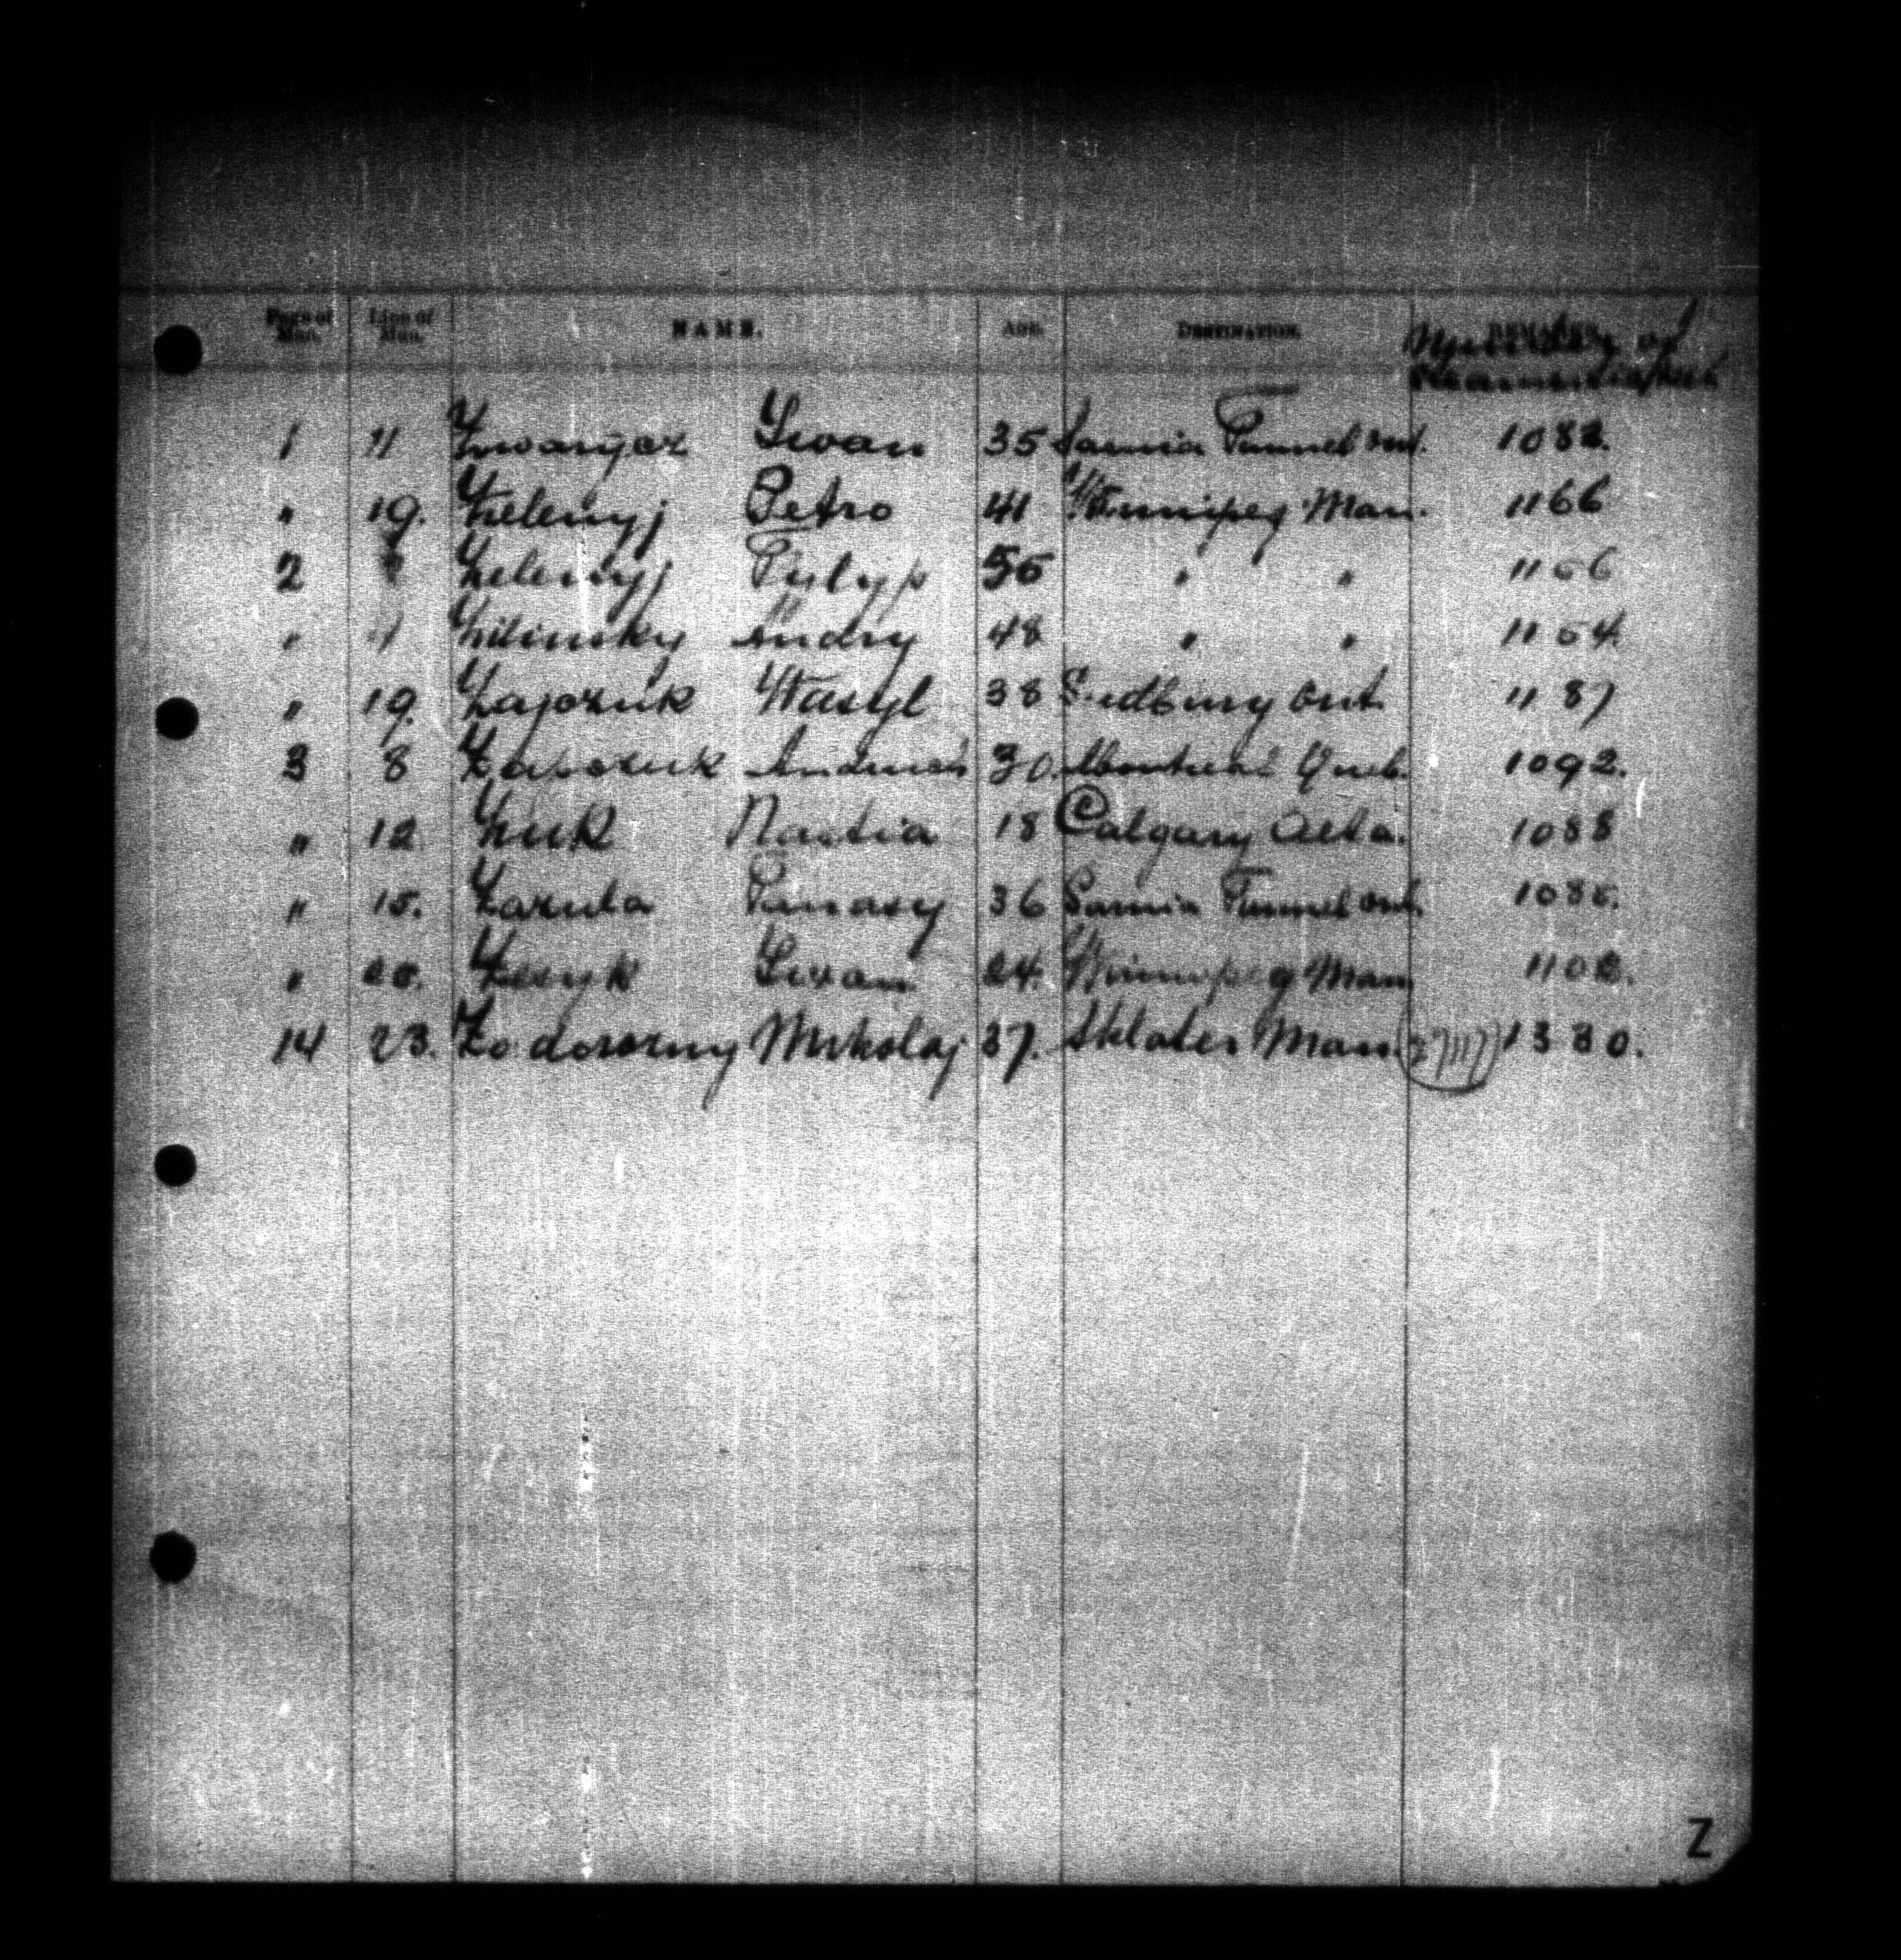 Page of Man. Line of Man. NAME. AGE. DESTINATION. REMARKS.
Number of
1 11 Zwarycz Iwan 35 Sarnia Tunnel Ont. 1082.
" 19. Zelenyj Petro 41 Winnipeg Man. 1166
2 Zelenyj Pylyp " " 1156
" Zilinsky Andry 48 " " 1154.
" 19. Zajozuk Wasyl 38 Sudbury Ont. 1187
3 8 30. Montreal Queb. 1092.
" 12 Zuk Nastia 18 Calgary Alta. 1088
" 15. Zazula Panasy 36 Sarnia Tunnel Ont. 1085.
" Iwan 24. Winnipeg Man
14 23. Zodorozny Mikolaj 37. Sklater Man. 1380.
Z